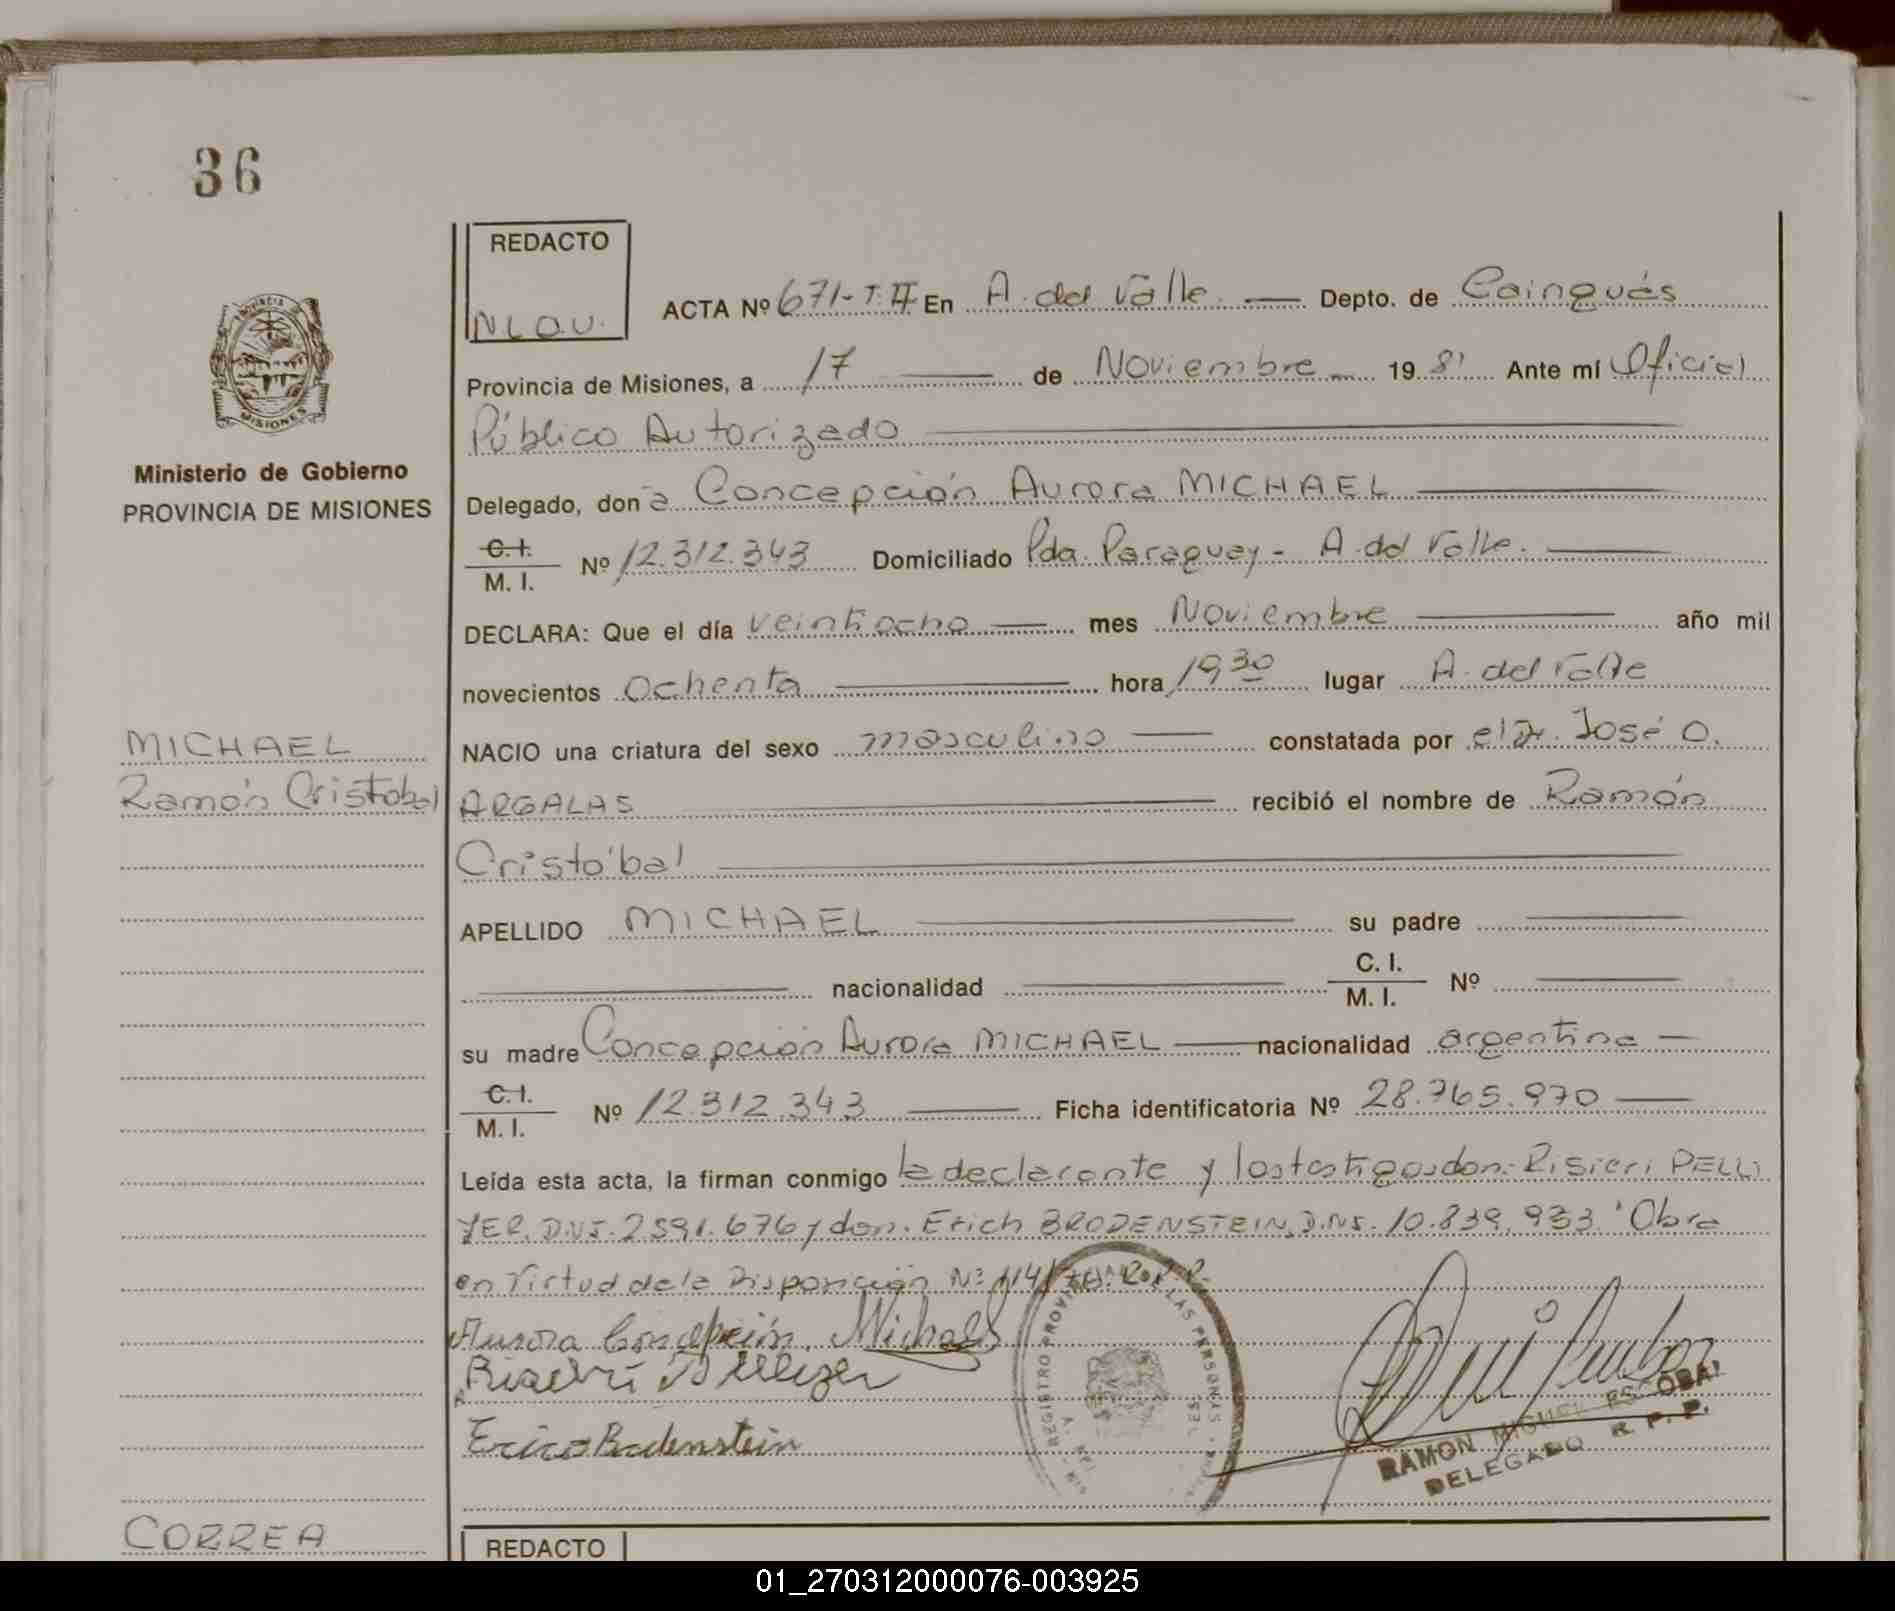 36
REDACTO
N.L.O.V.
ACTA Nº 671-T.II En A. del Valle Depto. de Cainguás
Provincia de Misiones, a 17 de Noviembre 1981 Ante mí Oficial
Público Autorizado
PROVINCIA
MISIONES
Ministerio de Gobierno
PROVINCIA DE MISIONES
Delegado, doña Concepción Aurora MICHAEL
C.I.
M. I. Nº 12.312.343 Domiciliado Pda. Paraguay - A. del Valle.
DECLARA: Que el día veintiocho mes Noviembre año mil
novecientos ochenta hora 19 30 lugar A. del Valle
MICHAEL
Ramón Cristobal
NACIO una criatura del sexo masculino constatada por el Dr. José O.
ARGALAS recibió el nombre de Ramón
Cristóbal
APELLIDO MICHAEL su padre
nacionalidad C. I.
M. I. Nº
su madre Concepción Aurora MICHAEL nacionalidad argentina
C.I.
M. I. Nº 12.312.343 Ficha identificatoria Nº 28.765.970
Leída esta acta, la firman conmigo la declarante y los testigos don: Risieri PELLI
ZER, D.N.I. 2.591.676 y don. Erich BRODENSTEIN, D.N.I. 10.839.933. Obra
en Virtud de la Disposición Nº R.P.P.
Aurora Concepción Michael
Risieri Pellizer
Erico Bodenstein
REGISTRO PROVINCIAL DE LAS PERSONAS
RAMON MIGUEL ESCOBAR
DELEGADO R. P. P.
CORREA
REDACTO
01_270312000076-003925